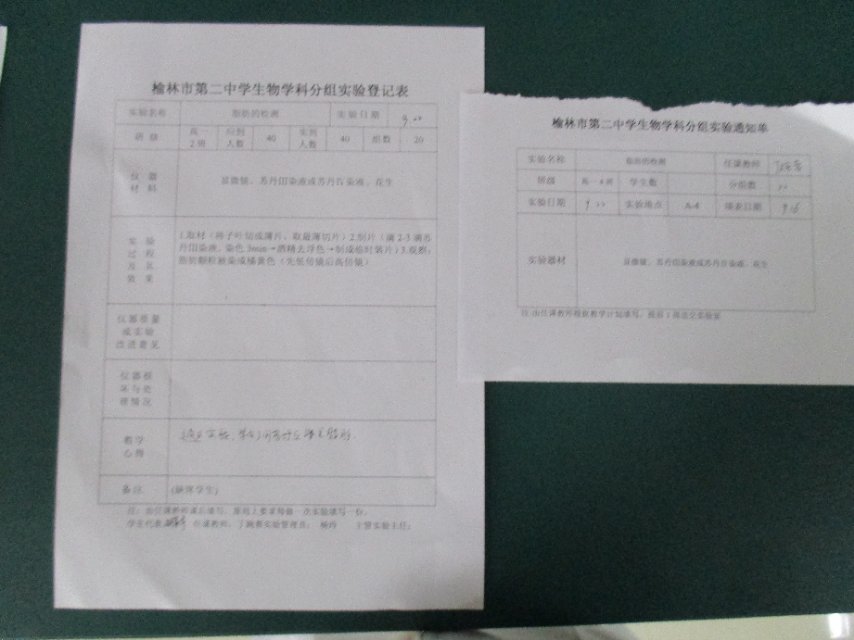 榆林市第二中学生物学科分组实验登记表
实验名称 脂肪的检测 实验日期 9.20
班级 高一2班 应到人数 40 实到人数 40 组数 20
仪器材料 显微镜、苏丹Ⅲ染液或苏丹Ⅳ染液、花生
实验过程及其效果
1.取材（将子叶切成薄片，取最薄切片）2.制片（滴2-3滴苏
丹Ⅲ染液，染色3min→酒精去浮色→制成临时装片）3.观察：
脂肪颗粒被染成橘黄色（先低倍镜后高倍镜）
仪器质量或实验改进意见
仪器损坏与处理情况
教学心得
备注 (缺席学生)
注：由任课教师课后填写，原则上要求每做一次实验填写一份。
学生代表： 任课教师： 实验管理员： 主管实验主任：
榆林市第二中学生物学科分组实验通知单
实验名称 脂肪的检测 任课教师
班级 学生数 分组数
实验日期 实验地点 A-4 填表日期
实验器材 显微镜、苏丹Ⅲ染液或苏丹Ⅳ染液、花生
注:由任课教师根据教学计划填写，提前1周送交实验室